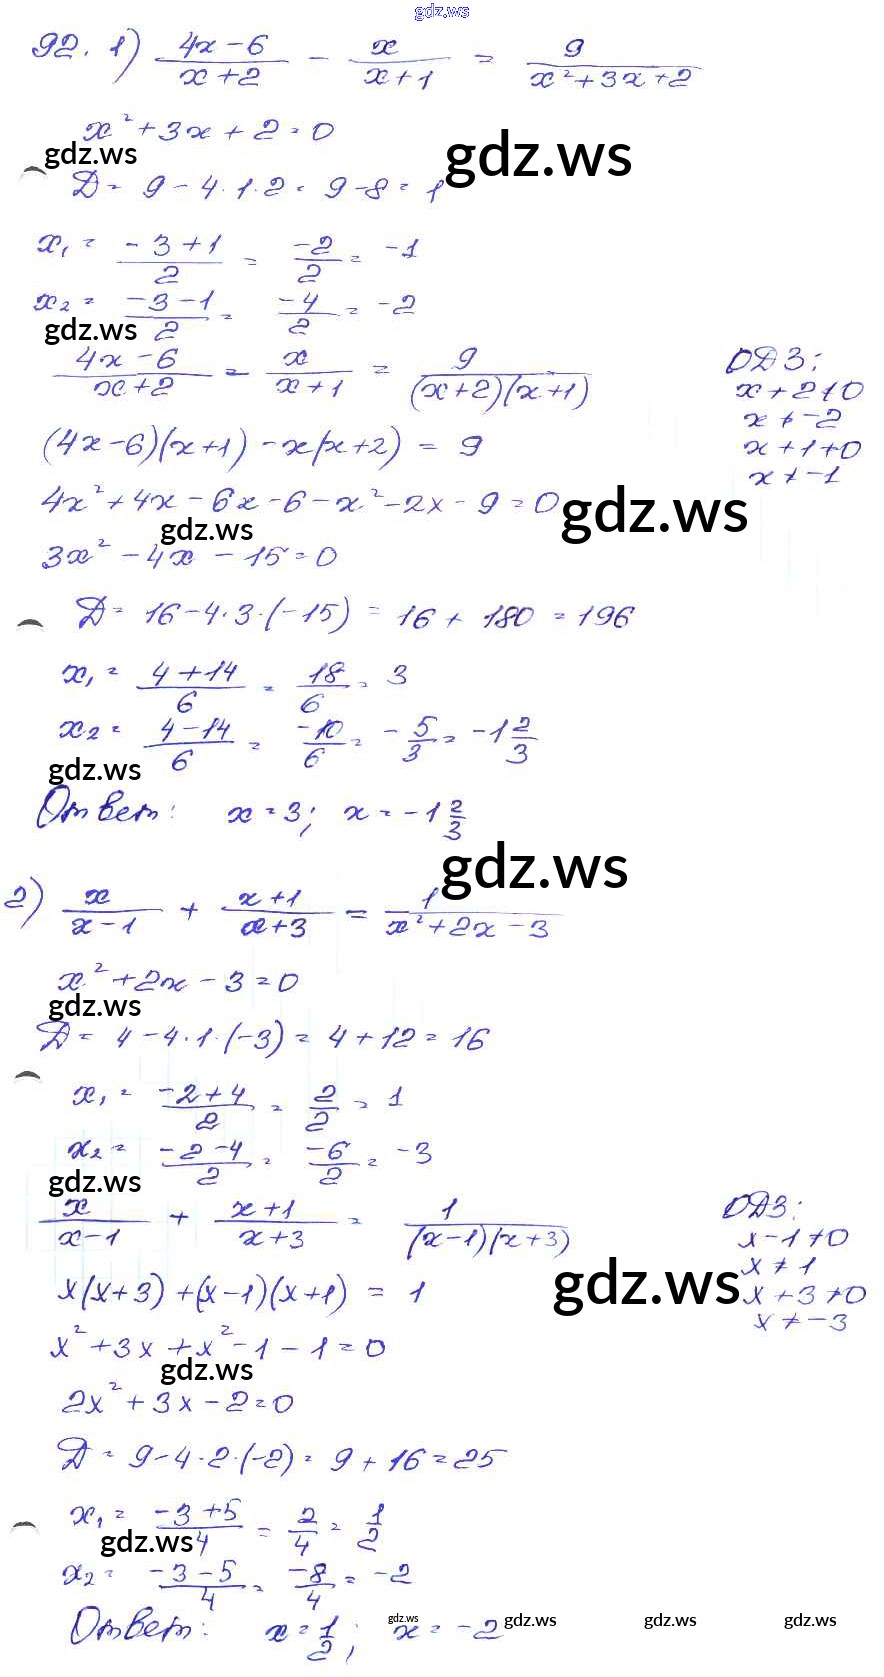 gdz.ws
92. 1) (4x-6)/(x+2) - x/(x+1) = 9/(x²+3x+2)
x²+3x+2=0
gdz.ws gdz.ws
D = 9-4·1·2 = 9-8 = 1
x₁ = (-3+1)/2 = -2/2 = -1
x₂ = (-3-1)/2 = -4/2 = -2
gdz.ws
(4x-6)/(x+2) - x/(x+1) = 9/((x+2)(x+1))
ОДЗ:
x+2≠0
x≠-2
x+1≠0
x≠-1
(4x-6)(x+1) - x(x+2) = 9
4x²+4x-6x-6-x²-2x-9=0
gdz.ws gdz.ws
3x²-4x-15=0
D = 16-4·3·(-15) = 16+180 = 196
x₁ = (4+14)/6 = 18/6 = 3
x₂ = (4-14)/6 = -10/6 = -5/3 = -1 2/3
gdz.ws
Ответ: x=3; x=-1 2/3
gdz.ws
2) x/(x-1) + (x+1)/(x+3) = 1/(x²+2x-3)
x²+2x-3=0
gdz.ws
D = 4-4·1·(-3) = 4+12 = 16
x₁ = (-2+4)/2 = 2/2 = 1
x₂ = (-2-4)/2 = -6/2 = -3
gdz.ws
x/(x-1) + (x+1)/(x+3) = 1/((x-1)(x+3))
ОДЗ:
x-1≠0
x≠1
x+3≠0
x≠-3
x(x+3)+(x-1)(x+1) = 1
gdz.ws
x²+3x+x²-1-1=0
gdz.ws
2x²+3x-2=0
D = 9-4·2·(-2) = 9+16=25
x₁ = (-3+5)/4 = 2/4 = 1/2
gdz.ws
x₂ = (-3-5)/4 = -8/4 = -2
Ответ: x=1/2; x=-2
gdz.ws gdz.ws gdz.ws gdz.ws